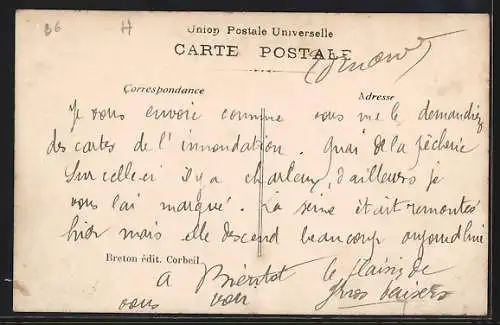 B6 H
Union Postale Universelle
CARTE POSTALE
Correspondance Adresse
Je vous envoie comme vous me le demandiez
des cartes de l'innondation. Quai de la pêcherie
Sur celle-ci il y a charleux, d'ailleurs je
vous l'ai marqué. La seine était remontés
hier mais elle descend beaucoup aujourd'hui
Breton édit. Corbeil
a Bientot le plaisir de
vous voir Gros baisers